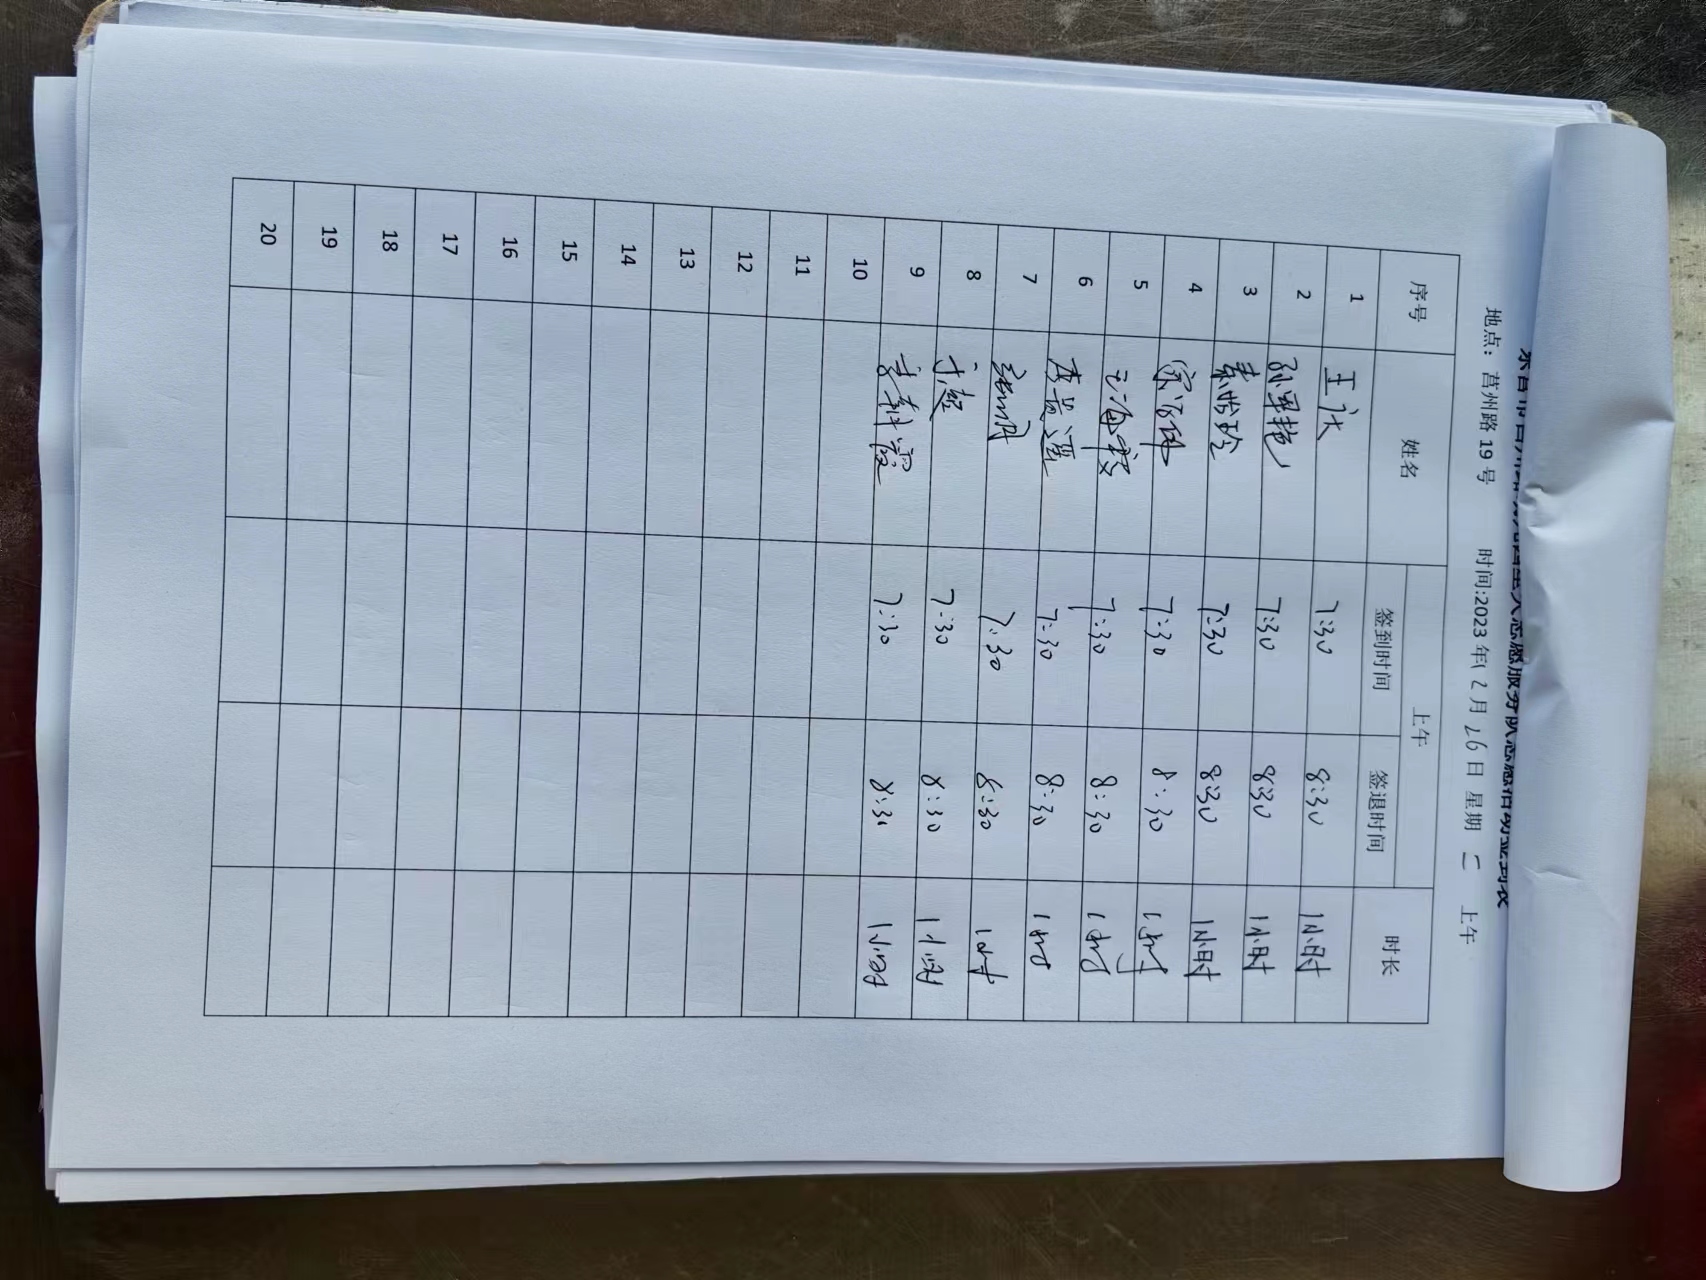 地点：莒州路19号 时间:2023年12月26日 星期 二 上午
序号 姓名 上午 时长
签到时间 签退时间
1 7:30 8:30 1小时
2 孙翠艳 7:30 8:30 1小时
3 7:30 8:30 1小时
4 7:30 8:30 1小时
5 王海霞 7:30 8:30 1小时
6 7:30 8:30 1小时
7 7:30 8:30 1小时
8 于超 7:30 8:30 1小时
9 7:30 8:30 1小时
10
11
12
13
14
15
16
17
18
19
20